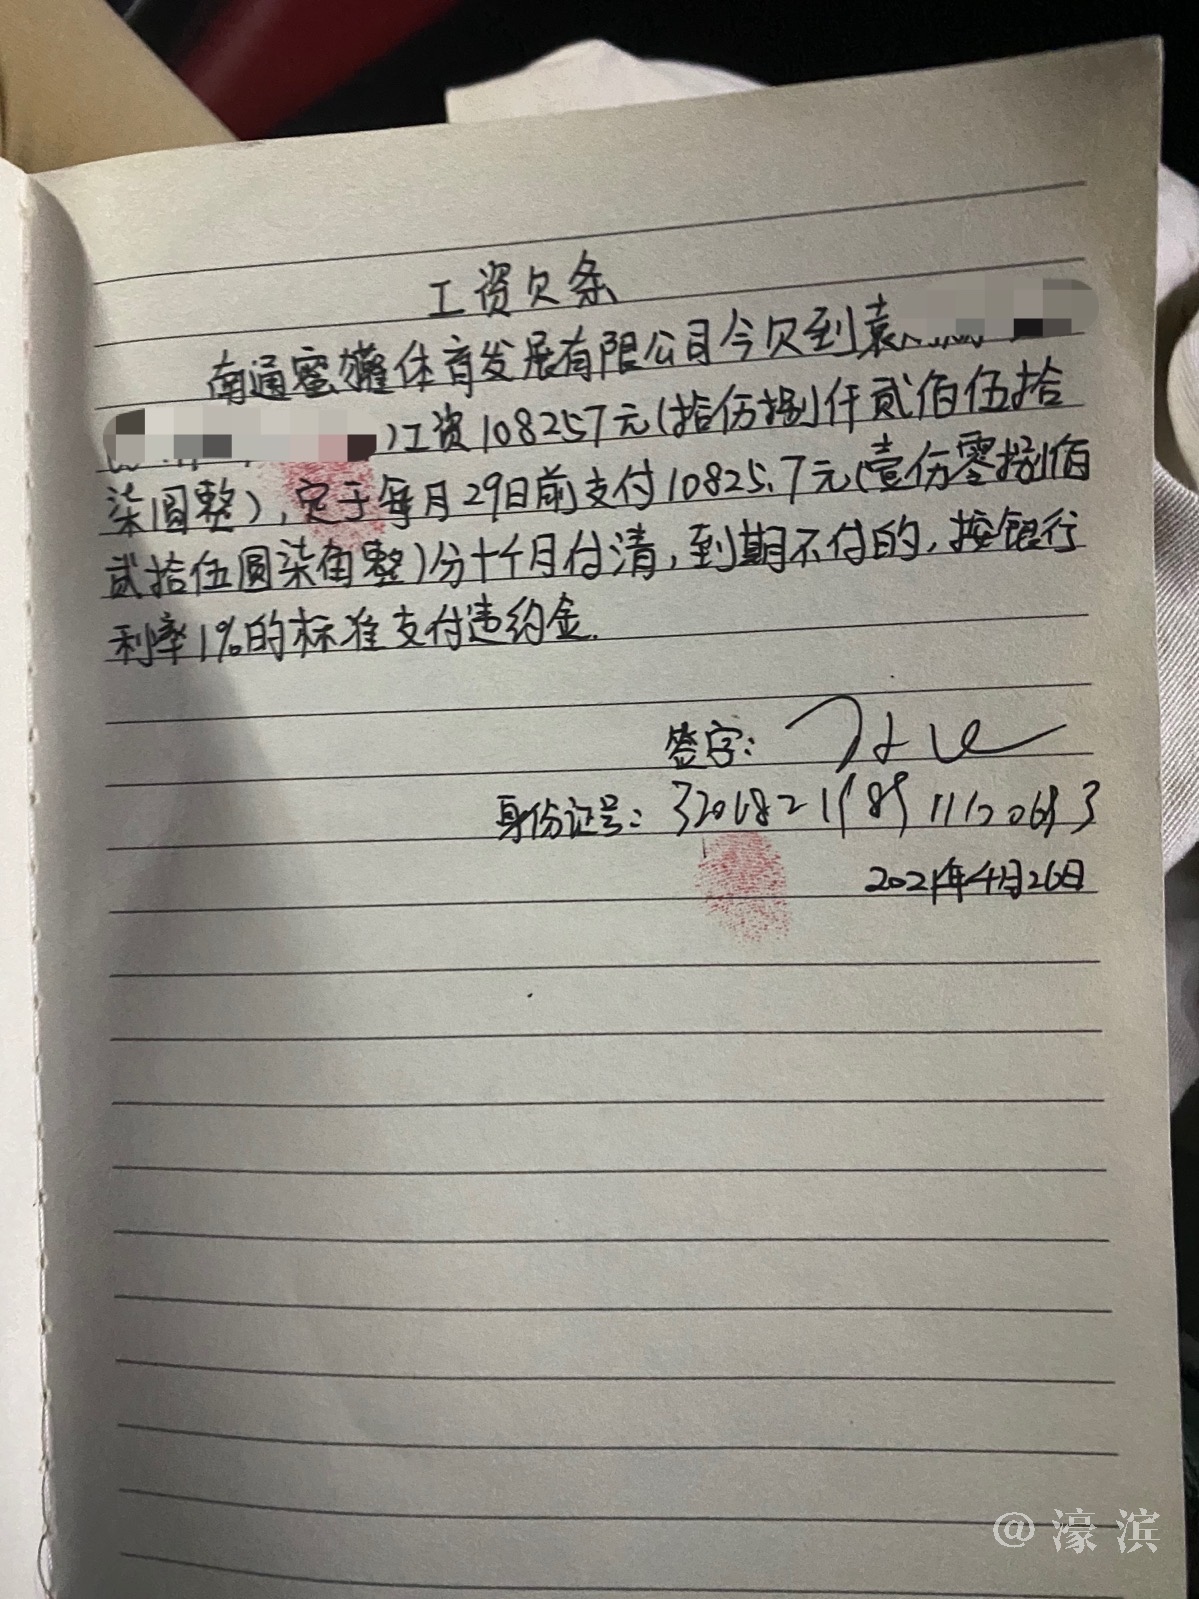 工资欠条
南通蜜罐体育发展有限公司今欠到袁
)工资108257元(拾仿捌仟贰佰伍拾
柒圆整),定于每月29日前支付10825.7元(壹仿零捌佰
贰拾伍圆柒角整)分十个月付清,到期不付的,按银行
利率1%的标准支付违约金.
签字:
身份证号:
2021年4月26日
@濠滨